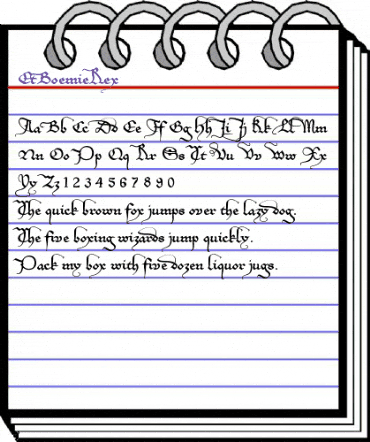 EtBoemieRex
Aa Bb Cc Dd Ee Ff Gg Hh Ii Jj Kk Ll Mm
Nn Oo Pp Qq Rr Ss Tt Uu Vv Ww Xx
Yy Zz 1 2 3 4 5 6 7 8 9 0
The quick brown fox jumps over the lazy dog.
The five boxing wizards jump quickly.
Pack my box with five dozen liquor jugs.